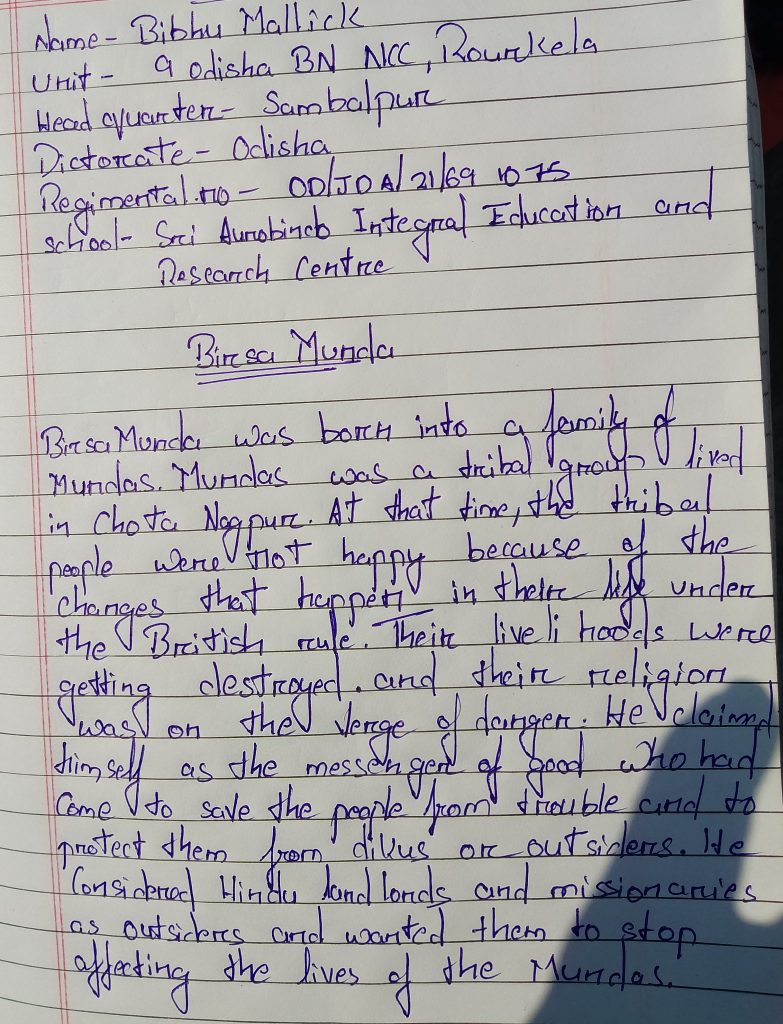 Name - Bibhu Mallick
Unit - 9 odisha BN NCC, Rourkela
Head quarter - Sambalpur
Dictorate - Odisha
Regimental.no - OD/JDA/21/69 1075
school - Sri Aurobindo Integral Education and
Research Centre
Birsa Munda
Birsa Munda was born into a family of
Mundas. Mundas was a tribal group lived
in Chota Nagpur. At that time, the tribal
people were not happy because of the
changes that happen in their life under
the British rule. Their livelihoods were
getting destroyed. and their religion
was on the verge of danger. He claimed
himself as the messenger of good who had
Come to save the people from trouble and to
protect them from dikus or outsiders. He
Considered Hindu landlords and missionaries
as outsiders and wanted them to stop
affecting the lives of the Mundas.